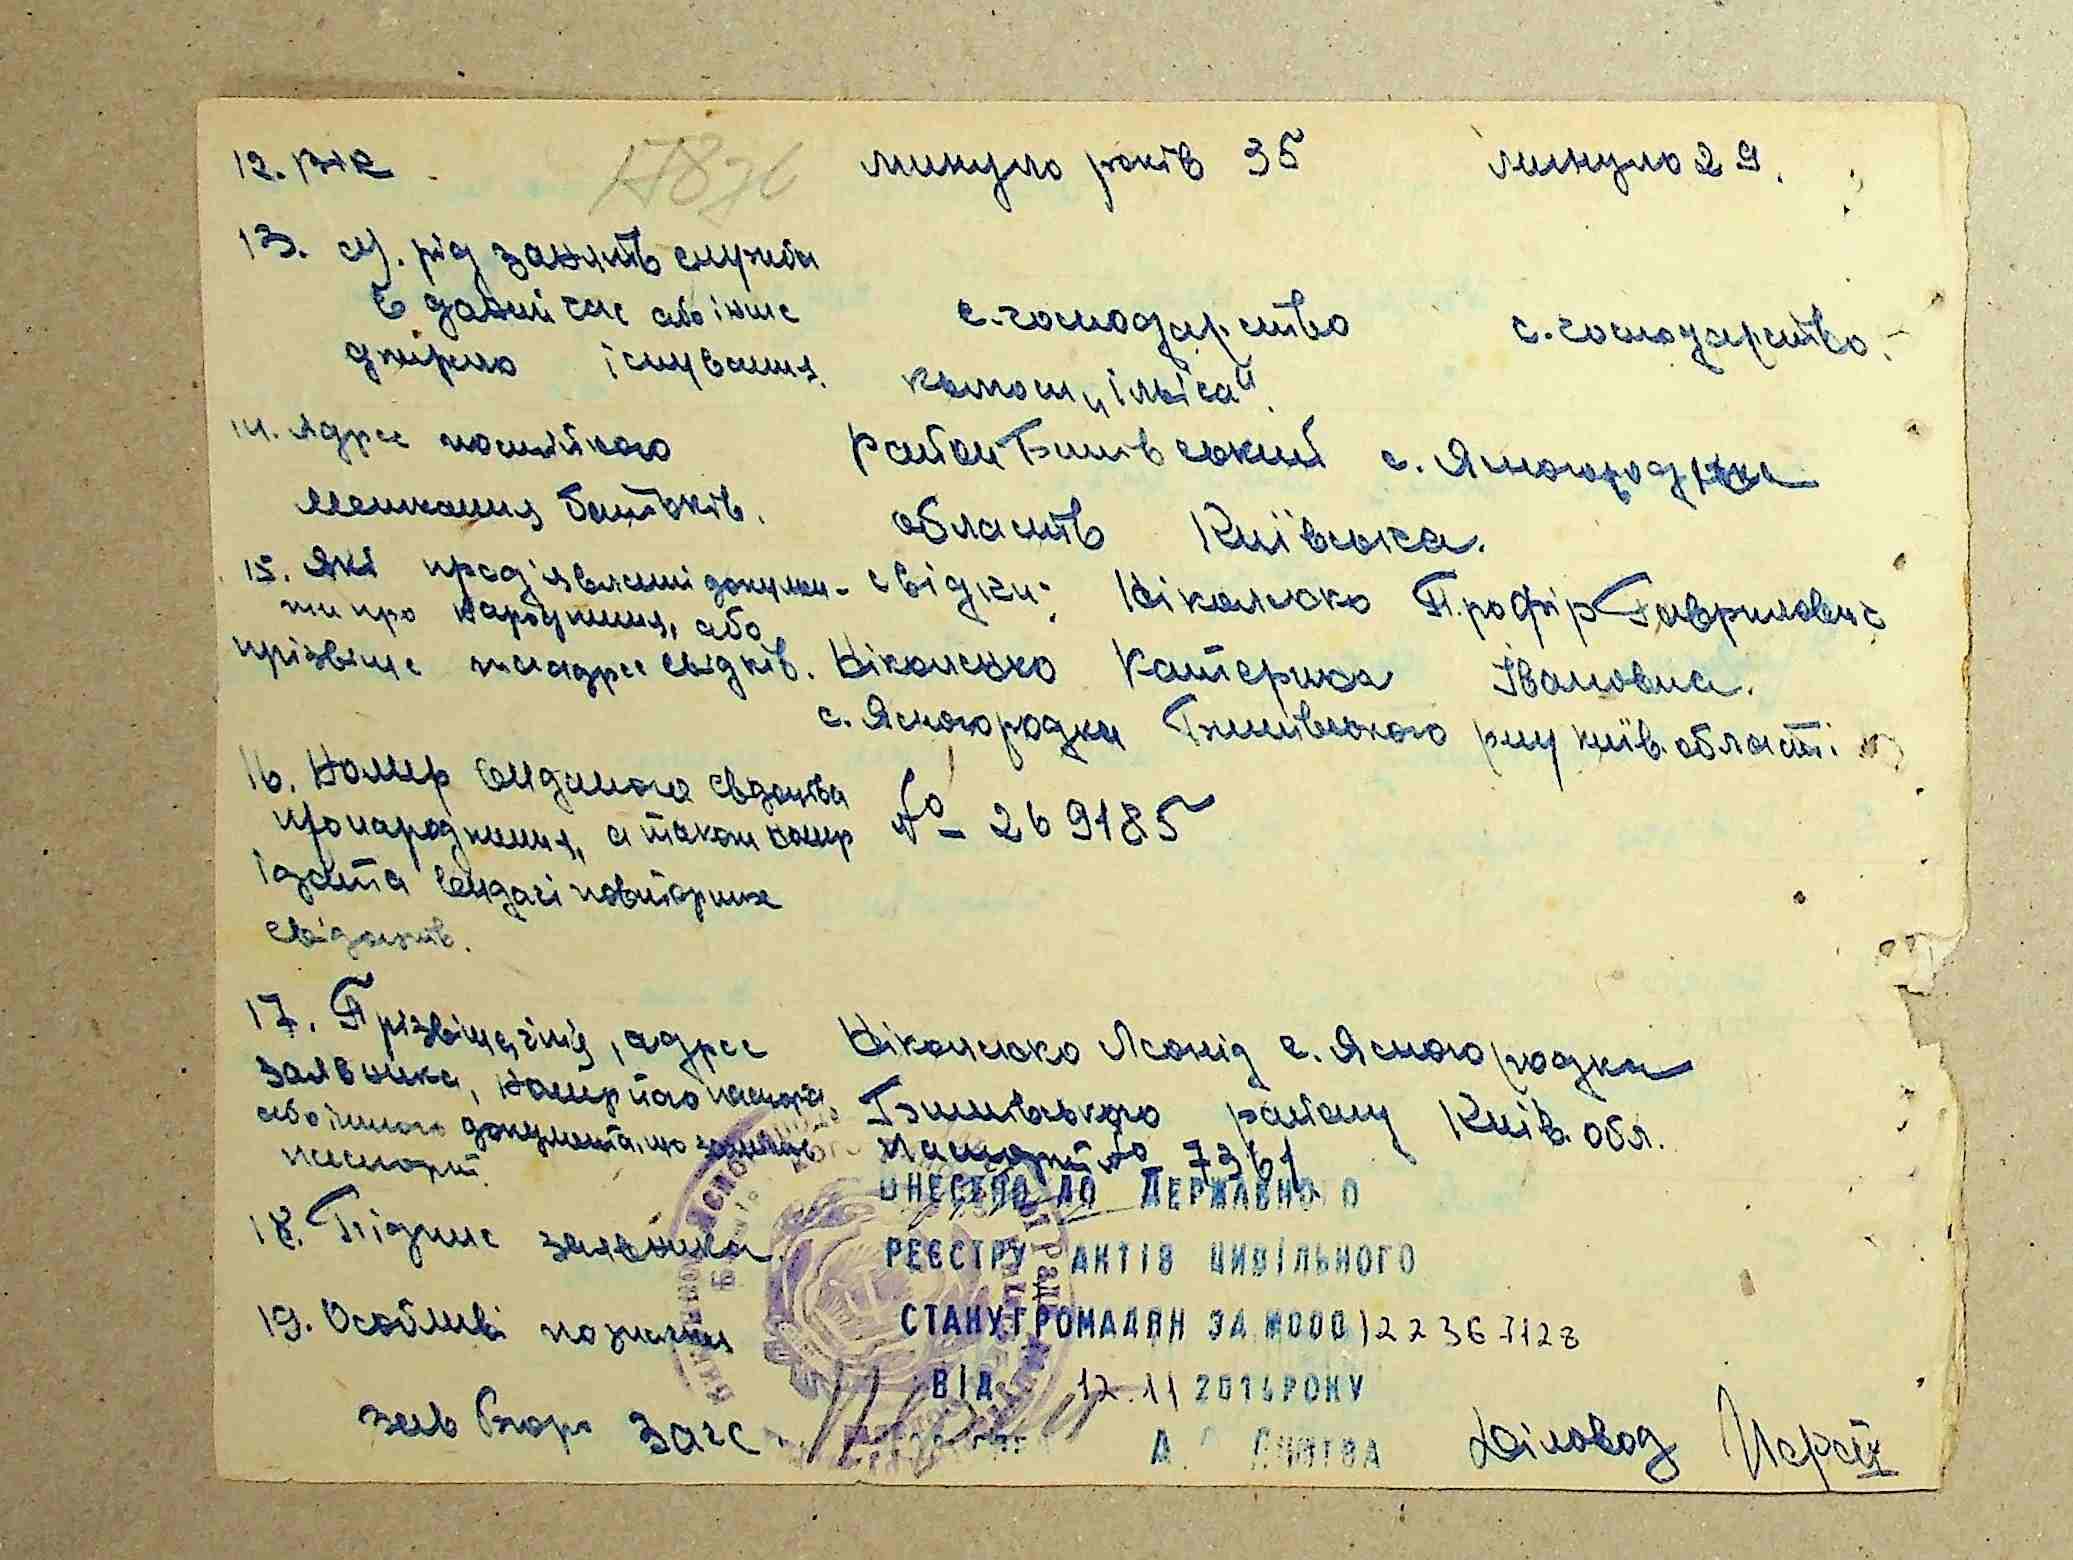 12. Вік минуло років 35 минуло 29.
13. рід занять служба
в даний час або інше с. господарство с. господарство.
джерело існування.
14. Адрес постійного район Бишівський с. Ясногородка
мешкання батьків. область Київська.
15. Які пред'явлені докумен- свідки: Ніколенко Профір Гаврилович
ти про народження, або
прізвіще та адрес свідків. Ніколенко Катерина Івановна.
с. Ясногородка Бишівського р-ну Київ. області
16. Номер виданого свідоцтва
про народження, а також номер № 269185
і дата видачі повторних
свідоцтв.
17. Прізвіще, ім'я, адрес Ніколенко Леонід с. Ясногородка
заявника, номер його паспорта Бишівського району Київ. обл.
або іншого документа, що заміняє Паспорт № 7361
паспорт.
ВНЕСЕНО ДО ДЕРЖАВНОГО
18. Підпис заявника.
РЕЄСТРУ АКТІВ ЦИВІЛЬНОГО
19. Особливі позначки
СТАНУ ГРОМАДЯН ЗА №000
ВІД 12.11 2014 РОКУ
зав бюро Загс. Діловод